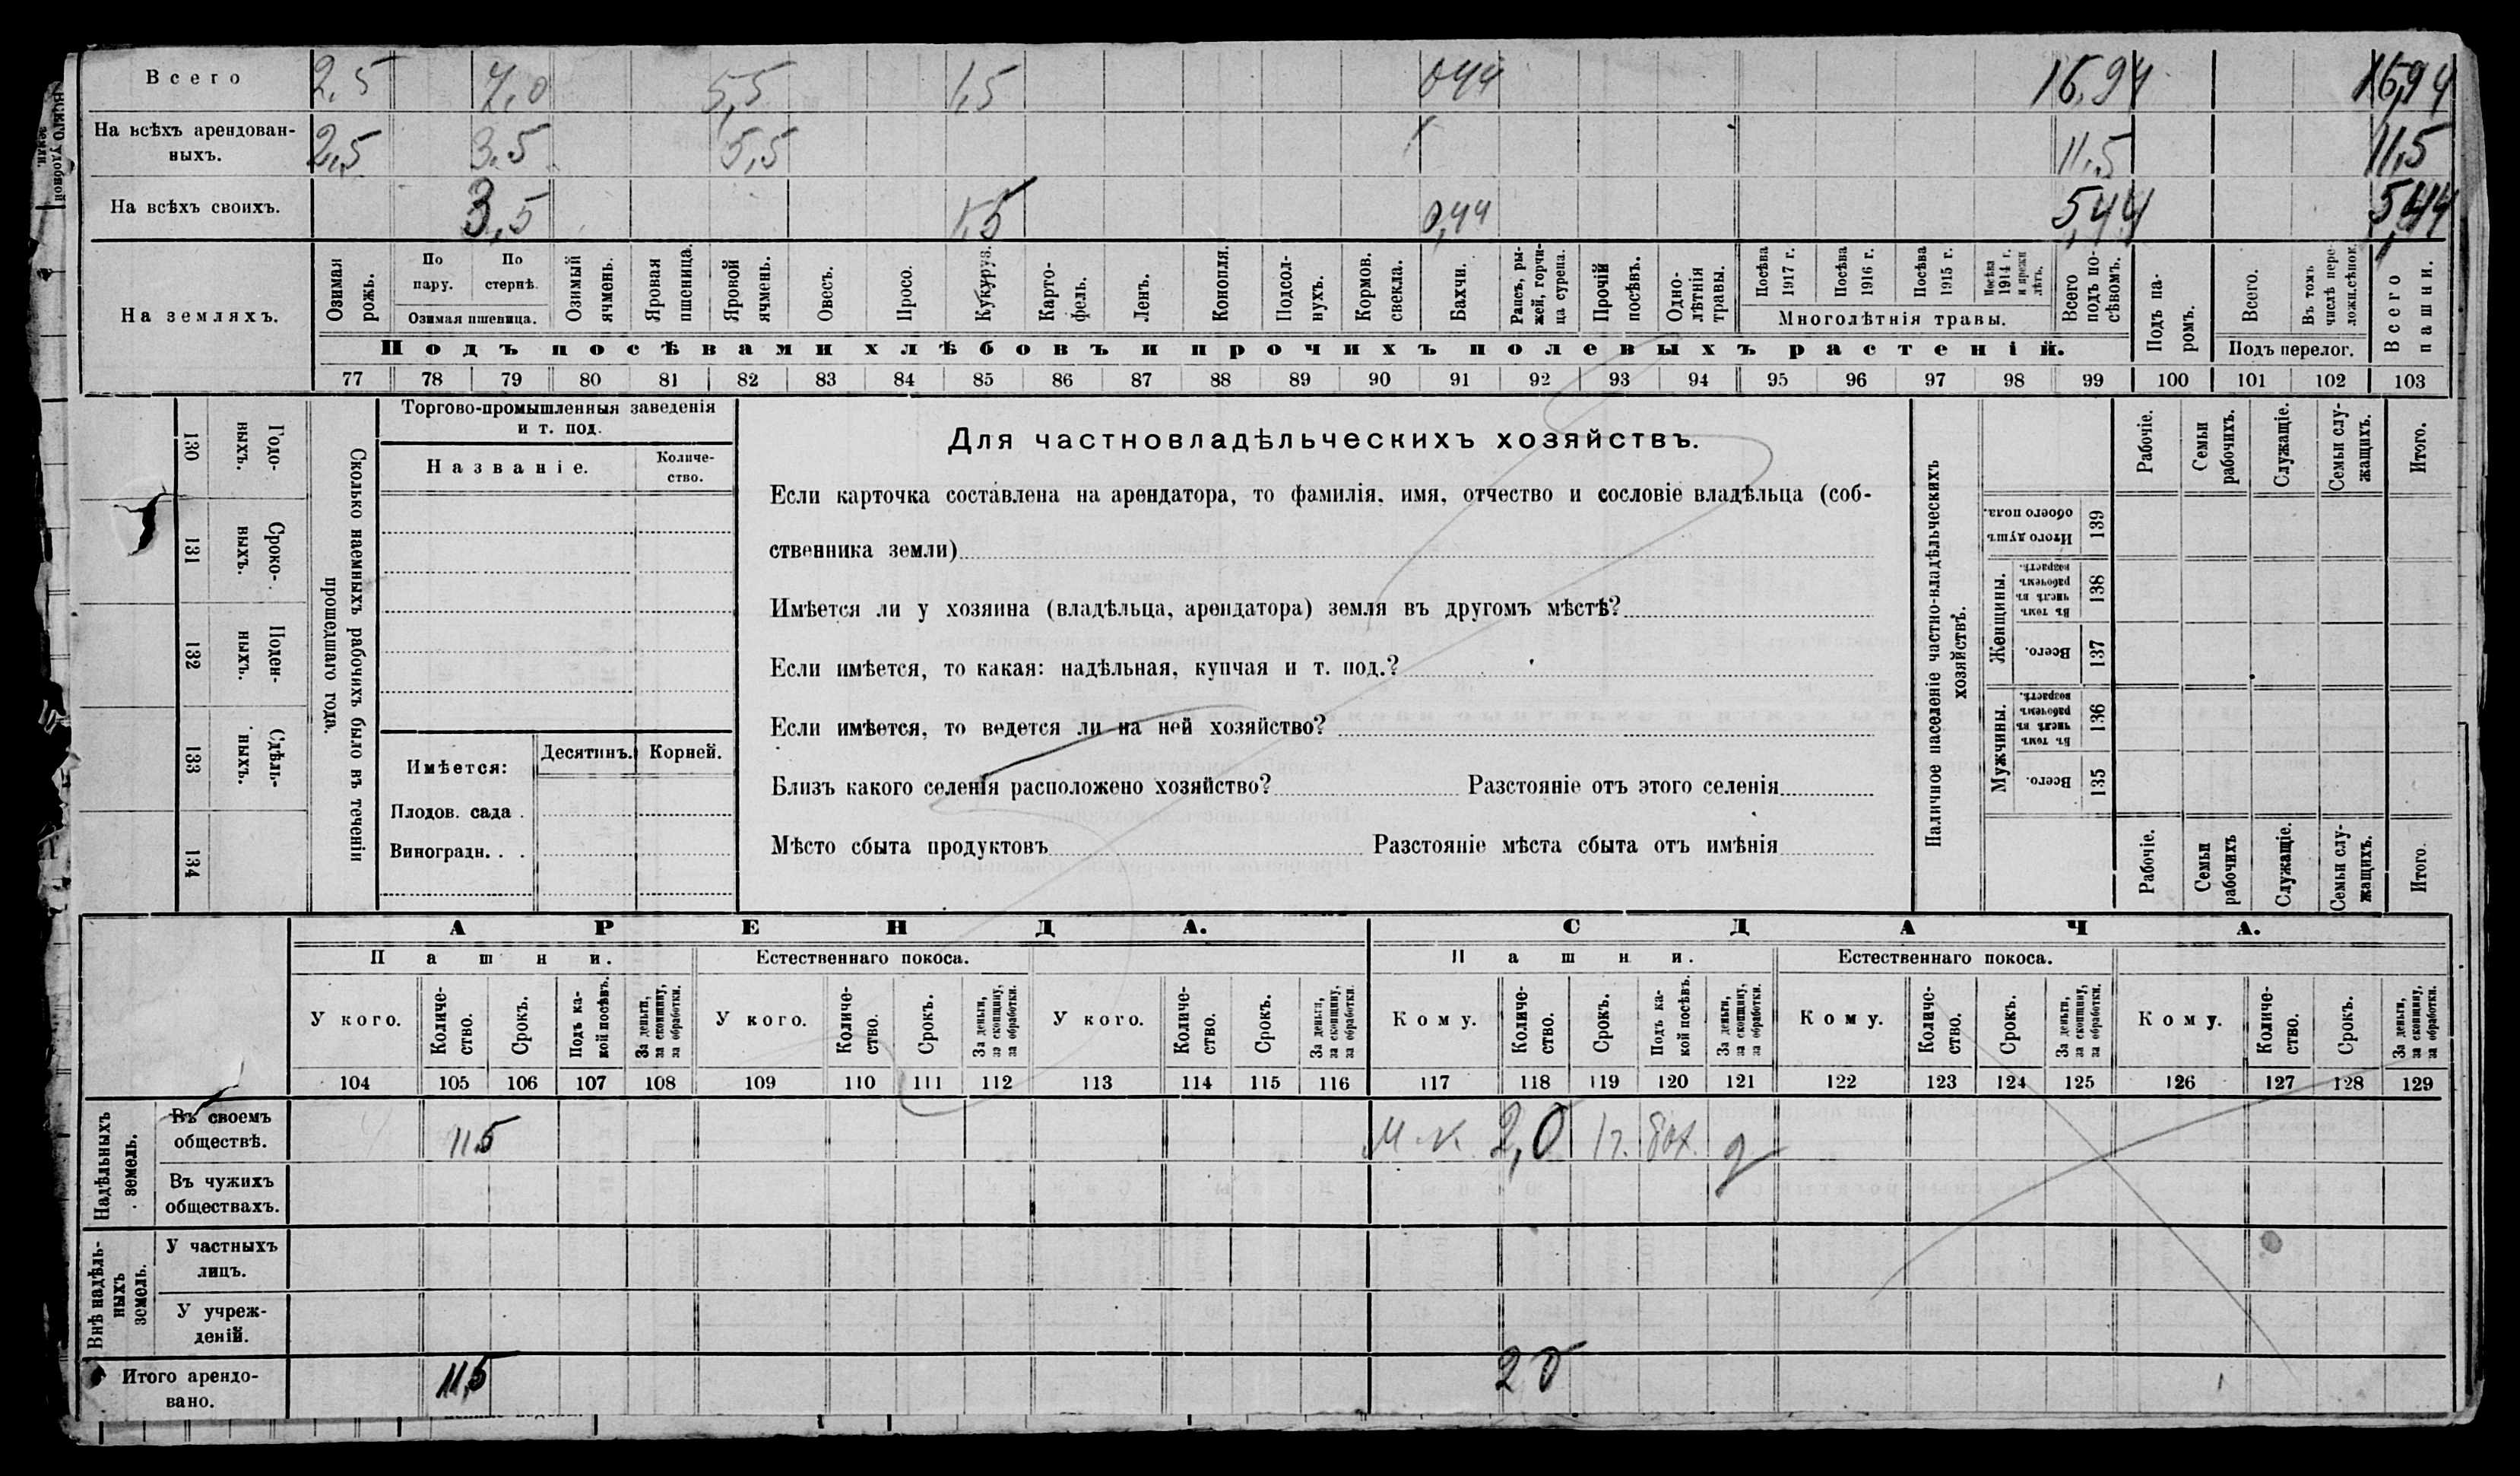 Всего 2,5 7,0 5,5 1,5 0,44 16,94 16,94
На всѣхъ арендован-
ныхъ. 2,5 3,5 5,5 11,5 11,5
На всѣхъ своихъ. 3,5 1,5 0,44 5,44 5,44
На земляхъ.
Озимая рожь.
По пару.
По стернѣ.
Озимая пшеница.
Озимый ячмень.
Яровая пшеница.
Яровой ячмень.
Овесъ.
Просо.
Кукуруз.
Карто-
фель.
Ленъ.
Конопля.
Подсол-
нухъ.
Кормов. свекла.
Бахчи.
Рапсъ, ры-
жей, горчи-
ца сурепа.
Прочій посѣвъ.
Одно-
лѣтнія травы.
Посѣва 1917 г.
Посѣва 1916 г.
Посѣва 1915 г.
Посѣва 1914 г. и прежн лѣтъ.
Многолѣтнія травы.
Всего подъ по-
сѣвомъ.
Подъ па-
ромъ.
Всего.
Въ томъ числѣ пере-
ложн.сѣнок.
Подъ перелог.
Всего пашни.
Подъ посѣвами хлѣбовъ и прочихъ полевыхъ растеній.
77 78 79 80 81 82 83 84 85 86 87 88 89 90 91 92 93 94 95 96 97 98 99 100 101 102 103
Сколько наемныхъ рабочихъ было въ теченіи
прошедшаго года.
Годо-
ныхъ.
130
Сроко-
ныхъ.
131
Поден-
ныхъ.
132
Сдѣль-
ныхъ.
133
134
Торгово-промышленныя заведенія
и т. под.
Названіе.
Количе-
ство.
Имѣется:
Десятинъ.
Корней.
Плодов. сада .
Виноградн. . .
Для частновладѣльческихъ хозяйствъ.
Если карточка составлена на арендатора, то фамилія, имя, отчество и сословіе владѣльца (соб-
ственника земли)
Имѣется ли у хозяина (владѣльца, арендатора) земля въ другомъ мѣстѣ?
Если имѣется, то какая: надѣльная, купчая и т. под.?
Если имѣется, то ведется ли на ней хозяйство?
Близъ какого селенія расположено хозяйство? Разстояніе отъ этого селенія
Мѣсто сбыта продуктовъ Разстояніе мѣста сбыта отъ имѣнія
Наличное населеніе частно-владѣльческихъ
хозяйствъ.
Рабочіе.
Семьи рабочихъ.
Служащіе.
Семьи слу-
жащихъ.
Итого.
Итого душ обоего пола.
139
Женщины.
Въ томъ числѣ въ рабочемъ возрастѣ.
138
Всего.
137
Мужчины.
Въ томъ числѣ въ рабочемъ возрастѣ.
136
Всего.
135
Рабочіе.
Семьи рабочихъ
Служащіе.
Семьи слу-
жащихъ.
Итого.
АРЕНДА. СДАЧА.
Пашни. Естественнаго покоса. Пашни. Естественнаго покоса.
У кого.
Количе-
ство.
Срокъ.
Подъ ка-
кой посѣвъ.
За деньги, за скопщину, за обработки.
У кого.
Количе-
ство.
Срокъ.
За деньги, за скопщину, за обработки.
У кого.
Количе-
ство.
Срокъ.
За деньги, за скопщину, за обработки.
Кому.
Количе-
ство.
Срокъ.
Подъ ка-
кой посѣвъ.
За деньги, за скопщину, за обработки.
Кому.
Количе-
ство.
Срокъ.
За деньги, за скопщину, за обработки.
Кому.
Количе-
ство.
Срокъ.
За деньги, за скопщину, за обработки.
104 105 106 107 108 109 110 111 112 113 114 115 116 117 118 119 120 121 122 123 124 125 126 127 128 129
Надѣльныхъ земель.
Въ своемъ
обществѣ. 11.5 М-к 2,0 1г. бах. д
Въ чужихъ
обществахъ.
Внѣ надѣль-
ныхъ земель.
У частныхъ
лицъ.
У учреж-
деній.
Итого арендо-
вано. 11,5 20